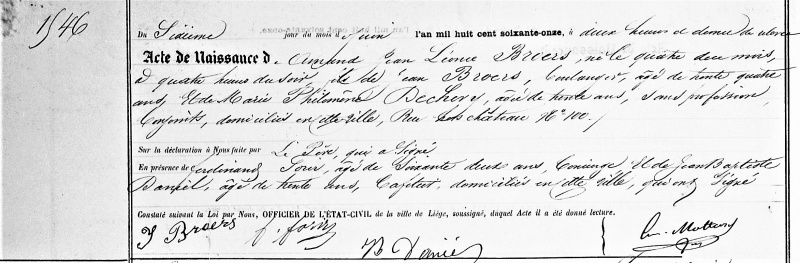 1546
Du Sixième jour du mois d juin l'an mil huit cent soixante-onze, à deux heures et demie de relevée
Acte de Naissance d Armand Jean Léonce Broers, né le quatre de ce mois,
à quatre heures du soir, fils de Jean Broers, boulanger, âgé de trente quatre
ans, et de Marie Philomène Dechevy, âgée de trente ans, sans profession
Conjoints, domiciliés en cette ville, Rue château No 100.
Sur la déclaration à Nous faite par Le Père, qui a Signé
En présence de Ferdinand Foury, âgé de Soixante deux ans, Concierge et de Jean Baptiste
Daniel, âgé de trente ans, domiciliés en cette ville, qui ont Signé
Constaté suivant la Loi par Nous, OFFICIER DE L'ÉTAT-CIVIL de la ville de Liége, soussigné, duquel Acte il a été donné lecture.
J Broers